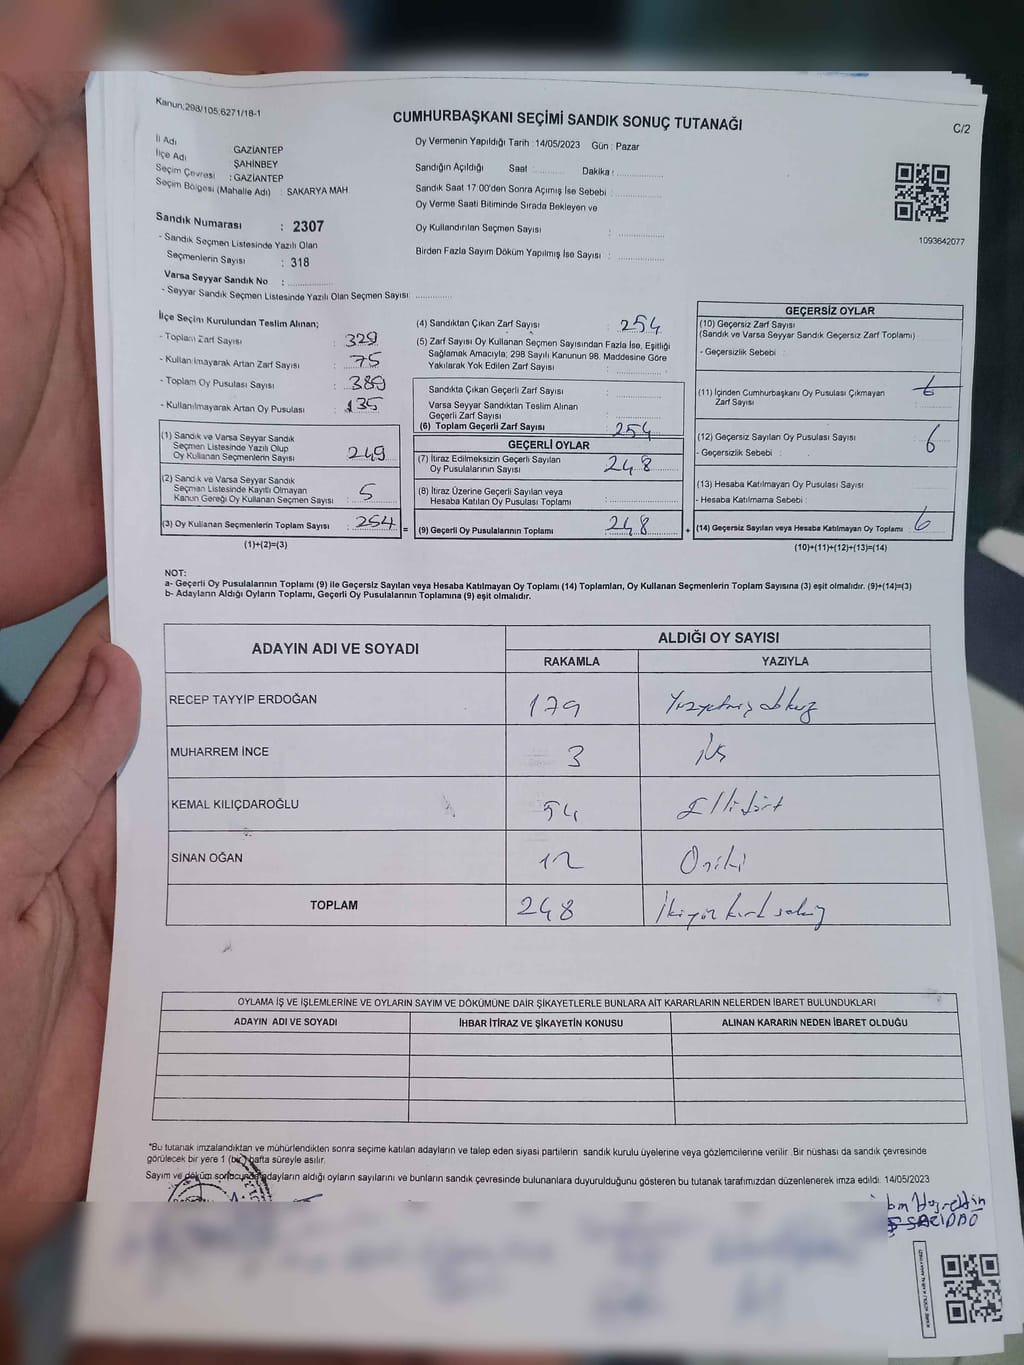 Kanun:298/105,6271/18-1
CUMHURBAŞKANI SEÇİMİ SANDIK SONUÇ TUTANAĞI
C/2
İl Adı : GAZİANTEP
İlçe Adı : ŞAHİNBEY
Seçim Çevresi : GAZİANTEP
Seçim Bölgesi (Mahalle Adı) : SAKARYA MAH
Sandık Numarası : 2307
- Sandık Seçmen Listesinde Yazılı Olan
Seçmenlerin Sayısı : 318
Varsa Seyyar Sandık No :
- Seyyar Sandık Seçmen Listesinde Yazılı Olan Seçmen Sayısı:
Oy Vermenin Yapıldığı Tarih : 14/05/2023 Gün : Pazar
Sandığın Açıldığı Saat Dakika :
Sandık Saat 17.00'den Sonra Açımış İse Sebebi :
Oy Verme Saati Bitiminde Sırada Bekleyen ve
Oy Kullandırılan Seçmen Sayısı :
Birden Fazla Sayım Döküm Yapılmış İse Sayısı :
1093642077
İlçe Seçim Kurulundan Teslim Alınan;
- Toplam Zarf Sayısı : 329
- Kullanılmayarak Artan Zarf Sayısı : 75
- Toplam Oy Pusulası Sayısı : 389
- Kullanılmayarak Artan Oy Pusulası : 135
(1) Sandık ve Varsa Seyyar Sandık
Seçmen Listesinde Yazılı Olup
Oy Kullanan Seçmenlerin Sayısı : 249
(2) Sandık ve Varsa Seyyar Sandık
Seçmen Listesinde Kayıtlı Olmayan
Kanun Gereği Oy Kullanan Seçmen Sayısı : 5
(3) Oy Kullanan Seçmenlerin Toplam Sayısı : 254
(1)+(2)=(3)
(4) Sandıktan Çıkan Zarf Sayısı : 254
(5) Zarf Sayısı Oy Kullanan Seçmen Sayısından Fazla İse, Eşitliği
Sağlamak Amacıyla; 298 Sayılı Kanunun 98. Maddesine Göre
Yakılarak Yok Edilen Zarf Sayısı :
Sandıkta Çıkan Geçerli Zarf Sayısı :
Varsa Seyyar Sandıktan Teslim Alınan
Geçerli Zarf Sayısı :
(6) Toplam Geçerli Zarf Sayısı : 254
GEÇERLİ OYLAR
(7) İtiraz Edilmeksizin Geçerli Sayılan
Oy Pusulalarının Sayısı : 248
(8) İtiraz Üzerine Geçerli Sayılan veya
Hesaba Katılan Oy Pusulası Toplamı :
= (9) Geçerli Oy Pusulalarının Toplamı : 248
GEÇERSİZ OYLAR
(10) Geçersiz Zarf Sayısı
(Sandık ve Varsa Seyyar Sandık Geçersiz Zarf Toplamı) :
- Geçersizlik Sebebi :
(11) İçinden Cumhurbaşkanı Oy Pusulası Çıkmayan
Zarf Sayısı : 6
(12) Geçersiz Sayılan Oy Pusulası Sayısı : 6
- Geçersizlik Sebebi :
(13) Hesaba Katılmayan Oy Pusulası Sayısı
- Hesaba Katılmama Sebebi :
+ (14) Geçersiz Sayılan veya Hesaba Katılmayan Oy Toplamı : 6
(10)+(11)+(12)+(13)=(14)
NOT:
a- Geçerli Oy Pusulalarının Toplamı (9) ile Geçersiz Sayılan veya Hesaba Katılmayan Oy Toplamı (14) Toplamları, Oy Kullanan Seçmenlerin Toplam Sayısına (3) eşit olmalıdır. (9)+(14)=(3)
b- Adayların Aldığı Oyların Toplamı, Geçerli Oy Pusulalarının Toplamına (9) eşit olmalıdır.
ADAYIN ADI VE SOYADI
ALDIĞI OY SAYISI
RAKAMLA YAZIYLA
RECEP TAYYİP ERDOĞAN 179 Yüzyetmiş dokuz
MUHARREM İNCE 3 üç
KEMAL KILIÇDAROĞLU 54 Ellidört
SİNAN OĞAN 12 Oniki
TOPLAM 248 İkiyüz kırk sekiz
OYLAMA İŞ VE İŞLEMLERİNE VE OYLARIN SAYIM VE DÖKÜMÜNE DAİR ŞİKAYETLERLE BUNLARA AİT KARARLARIN NELERDEN İBARET BULUNDUKLARI
ADAYIN ADI VE SOYADI İHBAR İTİRAZ VE ŞİKAYETİN KONUSU ALINAN KARARIN NEDEN İBARET OLDUĞU
*Bu tutanak imzalandıktan ve mühürlendikten sonra seçime katılan adayların ve talep eden siyasi partilerin sandık kurulu üyelerine veya gözlemcilerine verilir .Bir nüshası da sandık çevresinde
görülecek bir yere 1 (bir) hafta süreyle asılır.
Sayım ve döküm sonucunda adayların aldığı oyların sayılarını ve bunların sandık çevresinde bulunanlara duyurulduğunu gösteren bu tutanak tarafımızdan düzenlenerek imza edildi. 14/05/2023